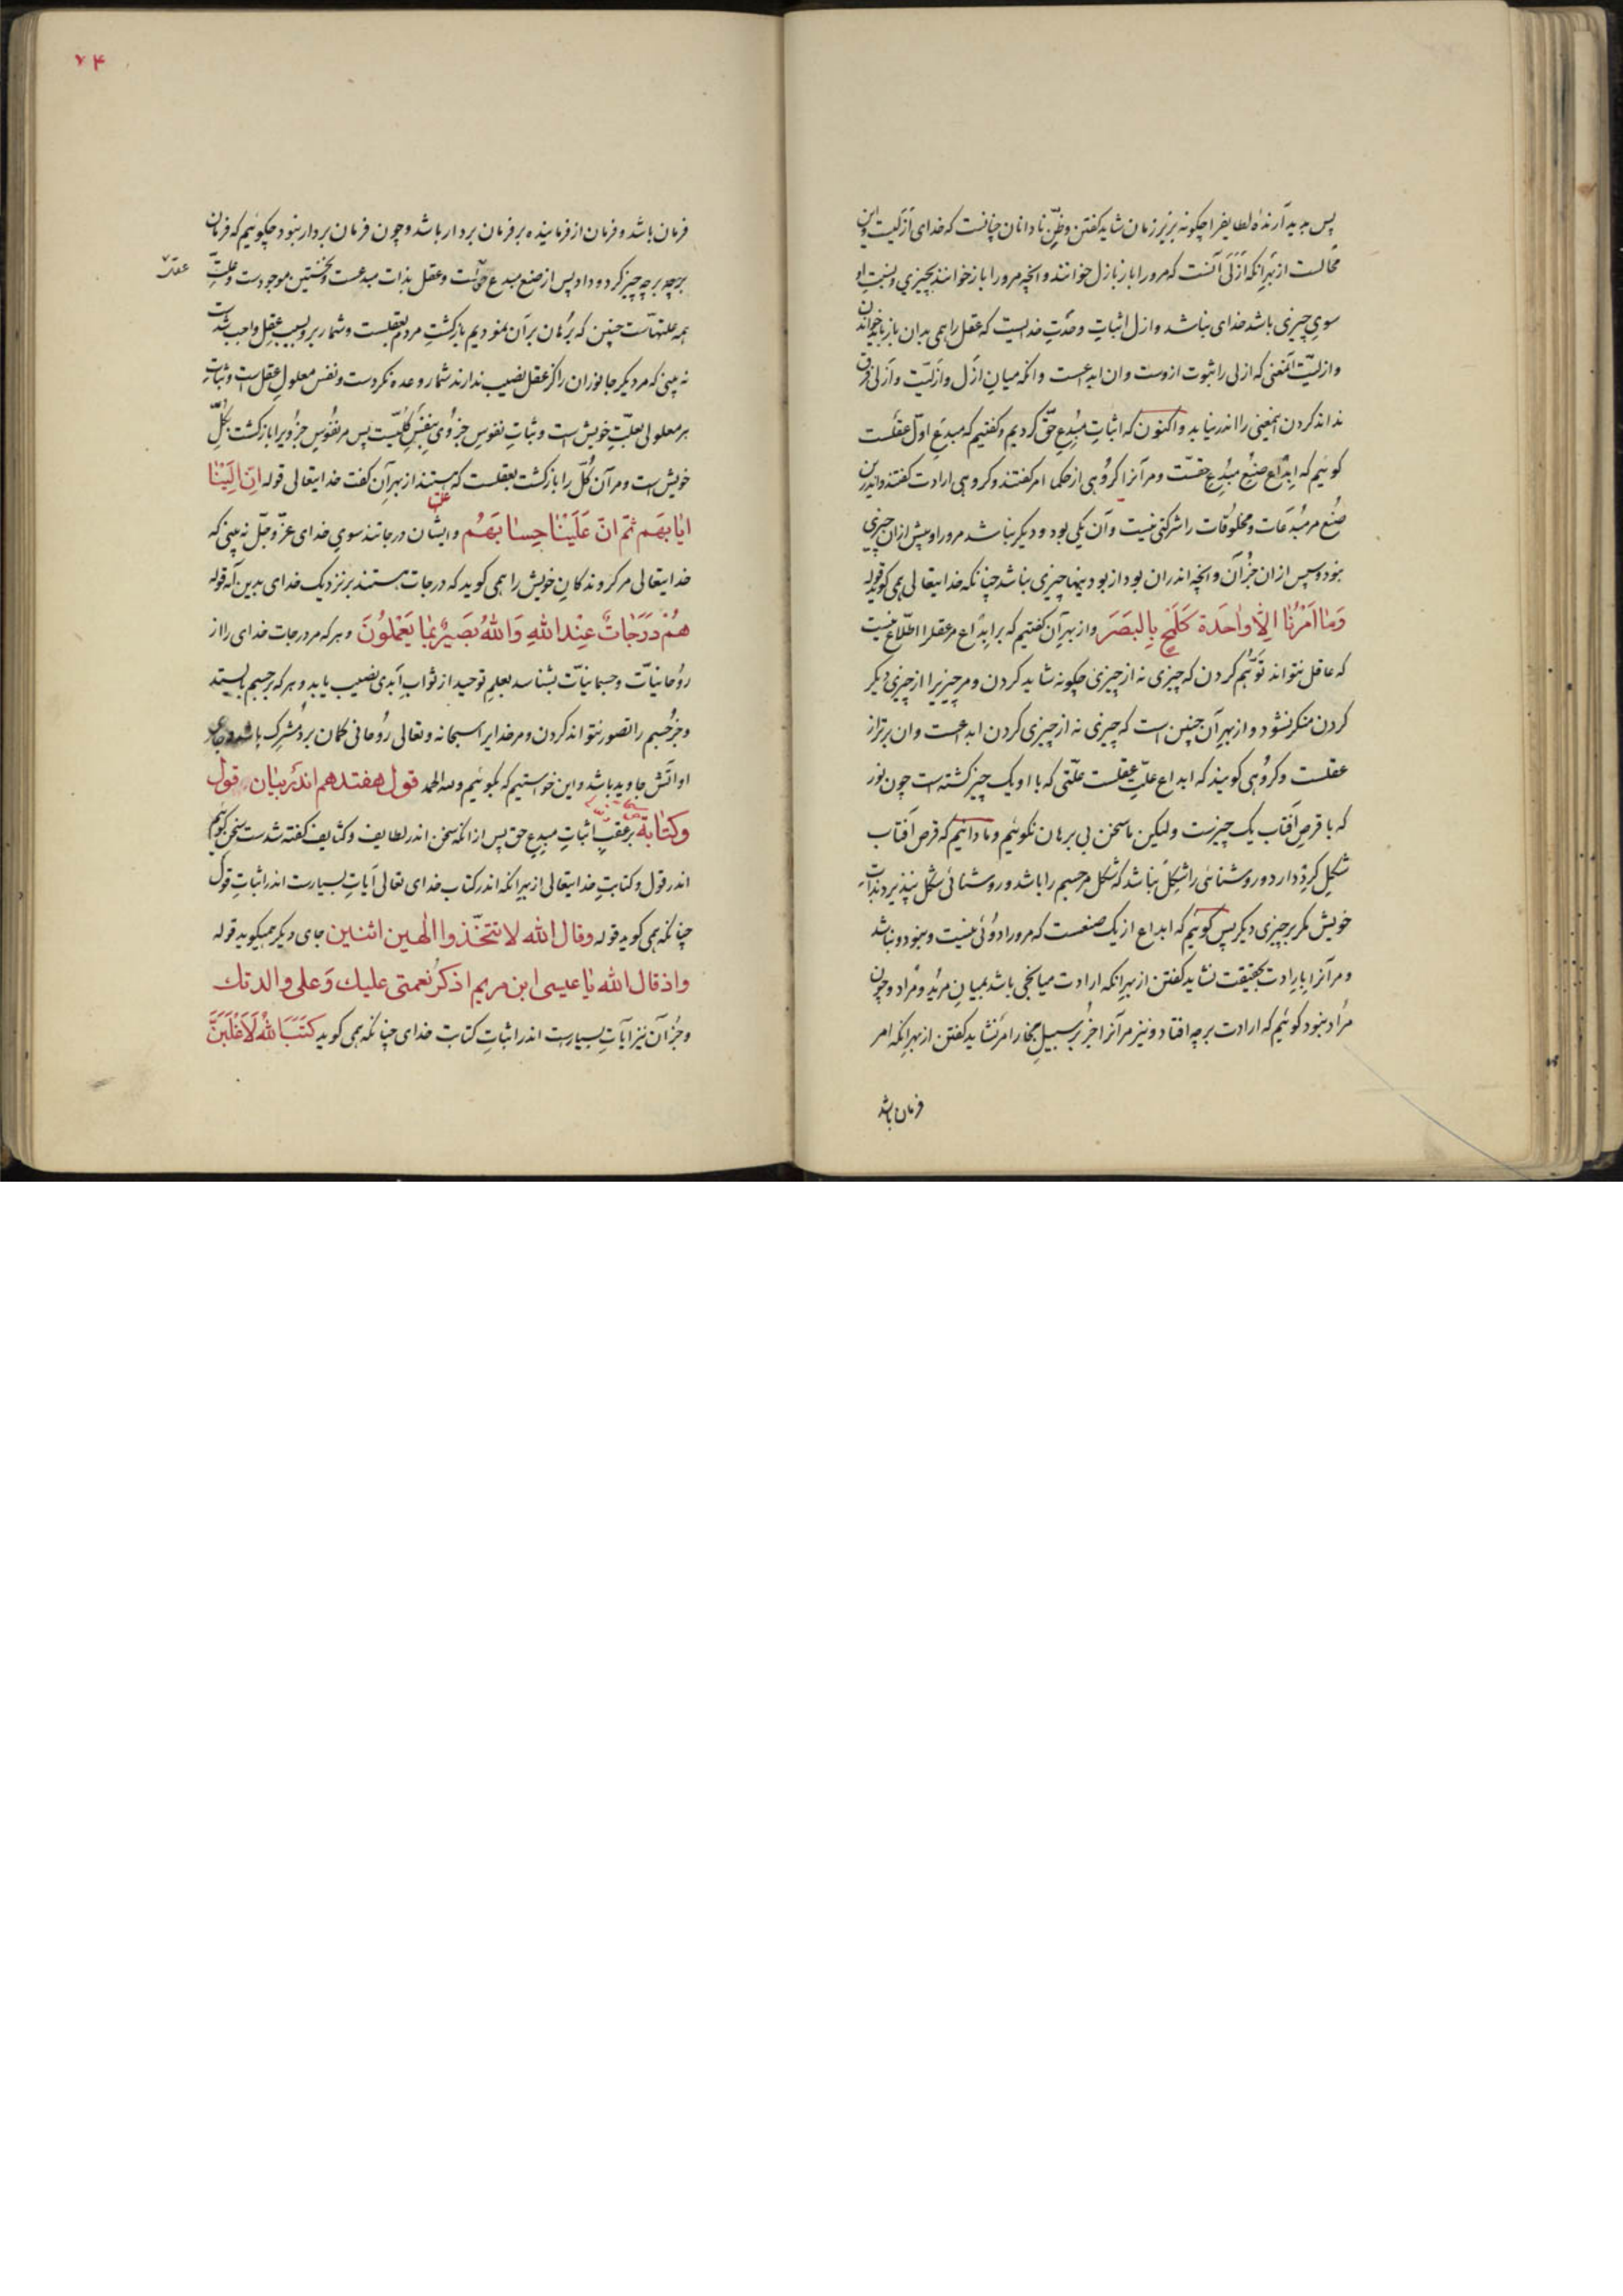 پس پدید آرنده لطایف را چگونه بزیر زمان شاید گفتن و ظنّ نادانان چنانست که خدای ازلیست و این
محالست از بهر آنکه ازلی آنست که مرورا باز بازل خوانند و آنچه مرورا باز خوانند بچیزی و نسبت او
سوی چیزی باشد خدای نباشد و ازل اثبات وحدت خدایست که عقل را همی بدان باز باید خواندن
و ازلیّت آنمعنی که ازلی را ثبوت ازوست و ان ابداعست و انکه میان ازل و ازلیّت و ازلی فرق
نداند کردن اینمعنی را اندر نیابد و اکنون که اثبات مبدع حقّ کردیم و گفتیم که مبدع اوّل عقلست
گوئیم که ابداع صنع مبدع حقست و مر آنرا گروهی از حکما امر گفتند و گروهی ارادت گفتند و اندرین
صنع مر مبدعات و مخلوقات را شرکتی نیست و آن یکی بود و دیگر نباشد مرورا و پیش ازان چیزی
نبود و سپس ازان جز آن و انچه اندران بود ازبودنیها چیزی نباشد چنانکه خدایتعالی همی گوید قوله
وَمٰا اَمْرُنٰا اِلّا وٰاحَدَة كَلَمْحٍ بِالبَصَرِ و از بهر آن گفتیم که بر ابداع مر عقل را اطلاع نیست
که عاقل نتواند توهّم کردن که چیزی نه از چیزی چگونه شاید کردن و مر چیزیرا از چیزی دیگر
کردن منکر نشود و از بهر آن چنین است که چیزی نه از چیزی کردن ابداعست و ان برتر از
عقلست و گروهی گویند که ابداع علّت عقلست علّتی که با او یک چیز گشته است چون نور
که با قرص آفتاب یک چیزست ولیکن ما سخن بی برهان نگوئیم و ما دانیم که قرص آفتاب
شکل گرد دارد و روشنائی را شکل نباشد که شکل مر جسم را باشد و روشنائی شکل نپذیرد بذات
خویش مگر بر چیزی دیگر پس گوئیم که ابداع از یک صنعست که مرورا دوئی نیست و نبود و نباشد
و مر آنرا بارادت بحقیقت نشاید گفتن از بهر آنکه ارادت میانجی باشد بمیان مرید و مراد و چون
مراد نبود گوئیم که ارادت بر چه افتاد و نیز مر آنرا جز بر سبیل مجاز امر نشاید گفتن از بهر آنکه امر
فرمان باشد
۷۴
فرمان باشد و فرمان از فرماینده بر فرمان بردار باشد و چون فرمان بردار نبود چگوئیم که فرمان
بر چه چیز کرد و داد پس از صنع مبدع حق است و عقل بذات مبدعست و نخستین موجودست و علّت
عقلست
همه علتهاست چنین که برهان بر آن نمودیم بازگشت مردم بعقلست و شمار برو بسبب عقل واجب شدست
نه بینی که مر دیگر جانوران را کز عقل نصیب ندارند شمار وعده نکردست و نفس معلول عقل است و ثبات
هر معلولی بعلّت خویش است و ثبات نفوس جزوی بنفس کلّیست پس مر نفوس جزویرا بازگشت بکلّ
خویش است و مر آن کلّ را بازگشت بعقلست که هستند از بهر آن گفت خدایتعالی قوله اِنّ اِلَیْنٰا
ایٰابهَم ثمّ انّ عَلَیْنٰا حِسٰابَهُم و ایشان درجاتند سوی خدای عزّ و جلّ نه بینی که
خدایتعالی مر گروندگان خویش را همی گوید که درجات هستند بر نزدیک خدای بدین آیه قوله
هُمْ دَرَجٰاتٌ عِنْدالله وَاللهُ بَصَیرٌ بِمٰا یَعْمَلُونَ و هر که مر درجات خدای را از
روحانیّات و جسمانیّات بشناسد بعلم توحید از ثواب ابدی نصیب یابد و هر که بر جسم بایستد
و جز جسم را تصور نتواند کردن و مر خدایرا سبحانه و تعالی روحانی گمان برد مشرک باشد و جای
او آتش جاوید باشد و این خواستیم که بگوئیم ولله الحمد قول هفتدهم اندر بیٰان قول
وکتٰابة بر عقب اثبات مبدع حق پس ازانکه سخن اندر لطایف و کثایف گفته شدست سخن گوئیم
اندر قول و کتابت خدایتعالی از بهر آنکه اندر کتاب خدای تعالی آیات بسیارست اندر اثبات قول
چنانکه همی گوید قوله وقال الله لاتتخّذوا الٰهین اثنین جای دیگر همیگوید قوله
واذ قال الله یٰا عیسی ابن مریم اذکر نعمتی علیك وَعلی والدتك
و جز آن نیز آیات بسیارست اندر اثبات کتابت خدای چنانکه همی گوید کَتَبَ اللهُ لَاَغْلَبَنَّ